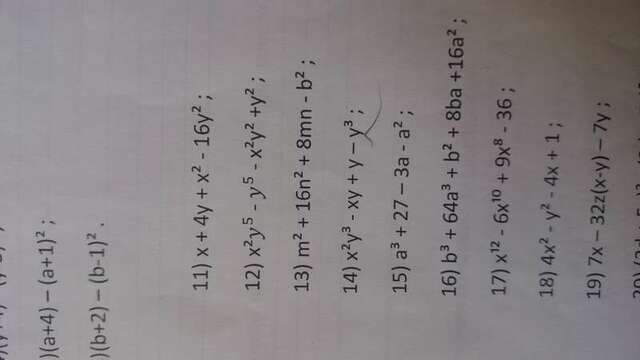 )(a+4) – (a+1)² ;
)(b+2) – (b-1)² .
11) x + 4y + x² - 16y² ;
12) x²y⁵ - y⁵ - x²y² +y² ;
13) m² + 16n² + 8mn - b² ;
14) x²y³ - xy + y – y³ ;
15) a³ + 27 – 3a - a² ;
16) b³ + 64a³ + b² + 8ba +16a² ;
17) x¹² - 6x¹⁰ + 9x⁸ - 36 ;
18) 4x² - y² - 4x + 1 ;
19) 7x – 32z(x-y) – 7y ;